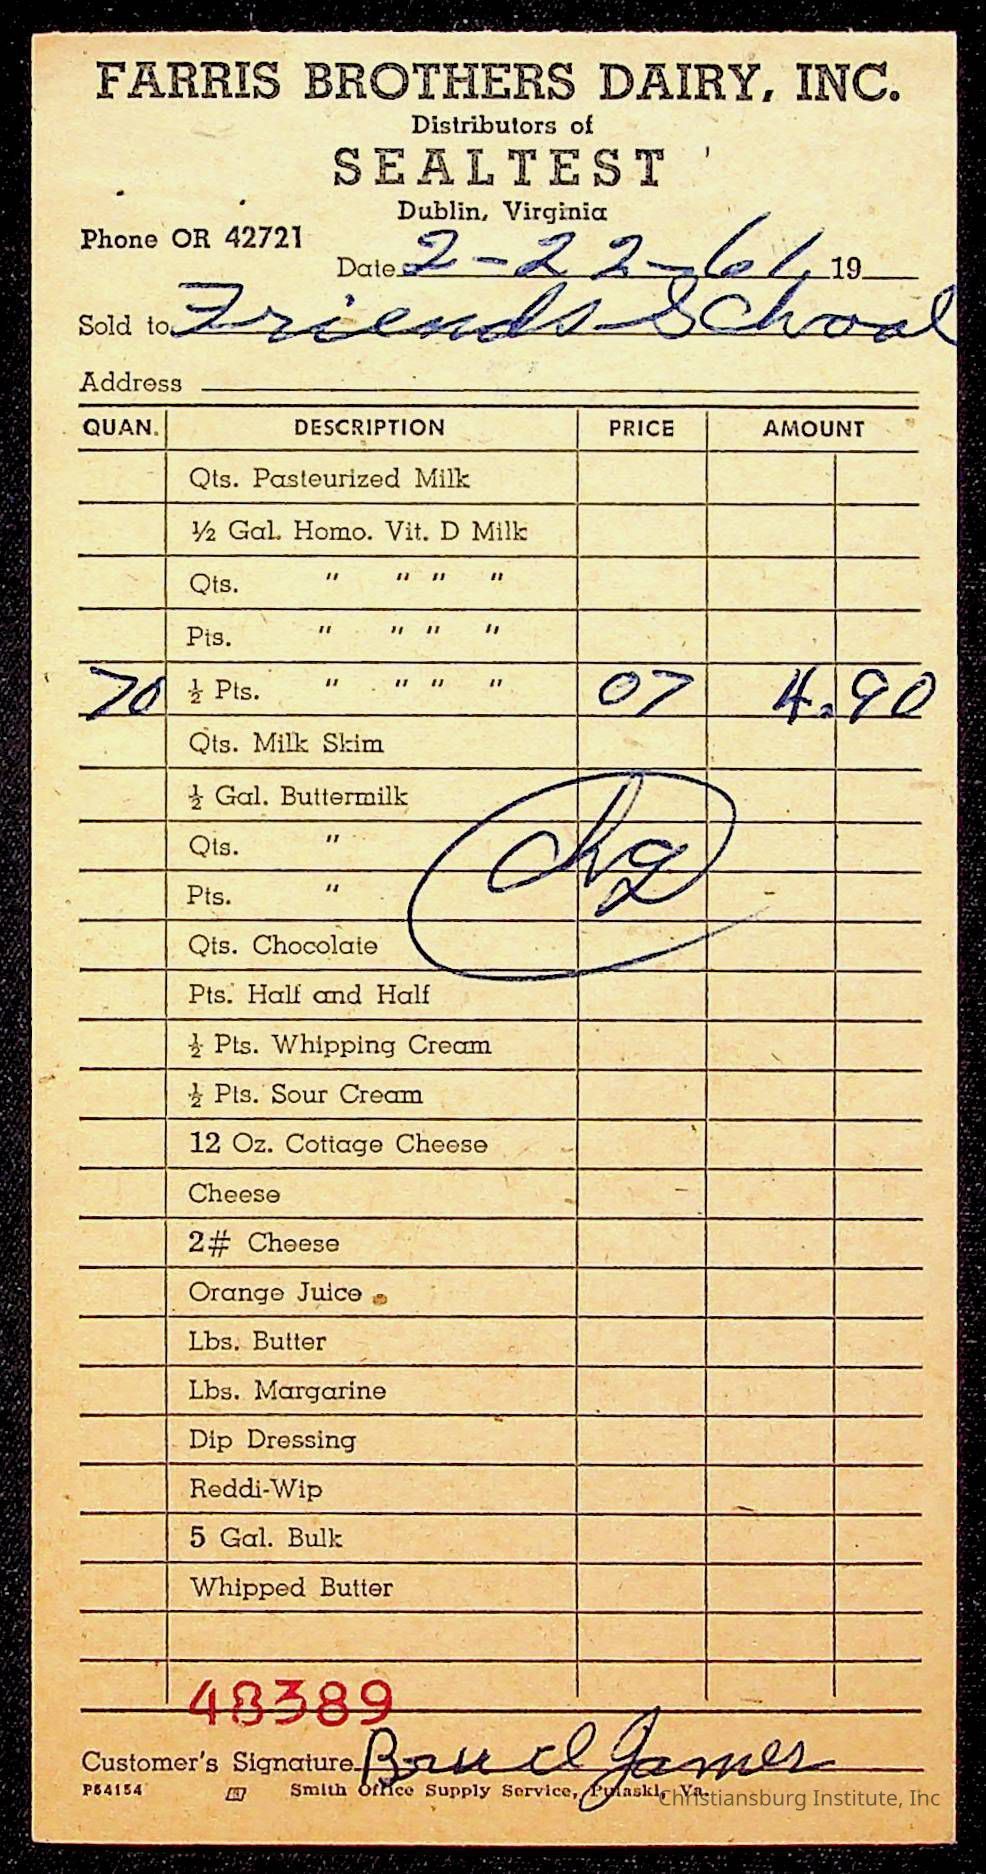 FARRIS BROTHERS DAIRY, INC.
Distributors of
SEALTEST
Dublin, Virginia
Phone OR 42721
Date 2-22-61 19
Sold to Friends School
Address
QUAN. DESCRIPTION PRICE AMOUNT
Qts. Pasteurized Milk
½ Gal. Homo. Vit. D Milk
Qts. " " " "
Pts. " " " "
70 ½ Pts. " " " " 07 4.90
Qts. Milk Skim
½ Gal. Buttermilk
Qts. "
Pts. "
chg
Qts. Chocolate
Pts. Half and Half
½ Pts. Whipping Cream
½ Pts. Sour Cream
12 Oz. Cottage Cheese
Cheese
2# Cheese
Orange Juice
Lbs. Butter
Lbs. Margarine
Dip Dressing
Reddi-Wip
5 Gal. Bulk
Whipped Butter
48389
Customer's Signature James
P54154 Smith Office Supply Service, Pulaski, Va.
Christiansburg Institute, Inc